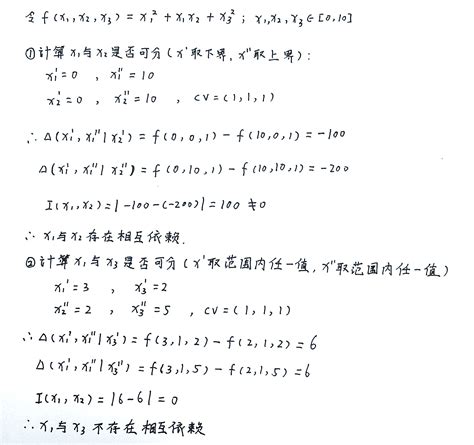 令 f(x₁,x₂,x₃) = x₁² + x₁x₂ + x₃² ; x₁,x₂,x₃ ∈ [0,10]
①计算 x₁与x₂是否可分(x'取下界, x''取上界):
x₁' = 0 , x₁'' = 10
x₂' = 0 , x₂'' = 10 , cv = (1,1,1)
∴ Δ(x₁',x₁''|x₂') = f(0,0,1) - f(10,0,1) = -100
Δ(x₁',x₁''|x₂'') = f(0,10,1) - f(10,10,1) = -200
I(x₁,x₂) = |-100-(-200)| = 100 ≠ 0
∴ x₁与x₂存在相互依赖.
②计算 x₁与x₃是否可分(x'取范围内任一值, x''取范围内任一值)
x₁' = 3 , x₃' = 2
x₂'' = 2 , x₃'' = 5 , cv = (1,1,1)
∴ Δ(x₁',x₁''|x₃') = f(3,1,2) - f(2,1,2) = 6
Δ(x₁',x₁''|x₃'') = f(3,1,5) - f(2,1,5) = 6
I(x₁,x₂) = |6-6| = 0
∴ x₁与x₃不存在相互依赖